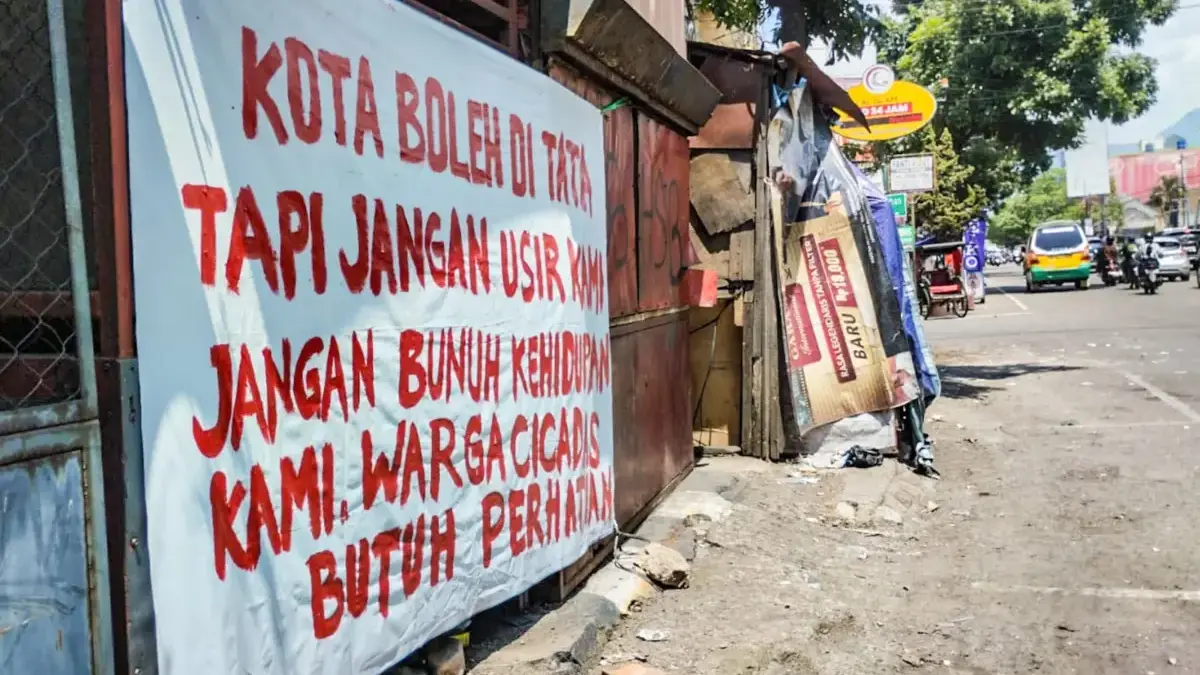 KOTA BOLEH DI TATA
TAPI JANGAN USIR KAMI
JANGAN BUNUH KEHIDUPAN
KAMI. WARGA CICADIS
BUTUH PERHATIAN
24 JAM
RASA LEGENDARIS TANPA FILTER
Rp18,000
BARU